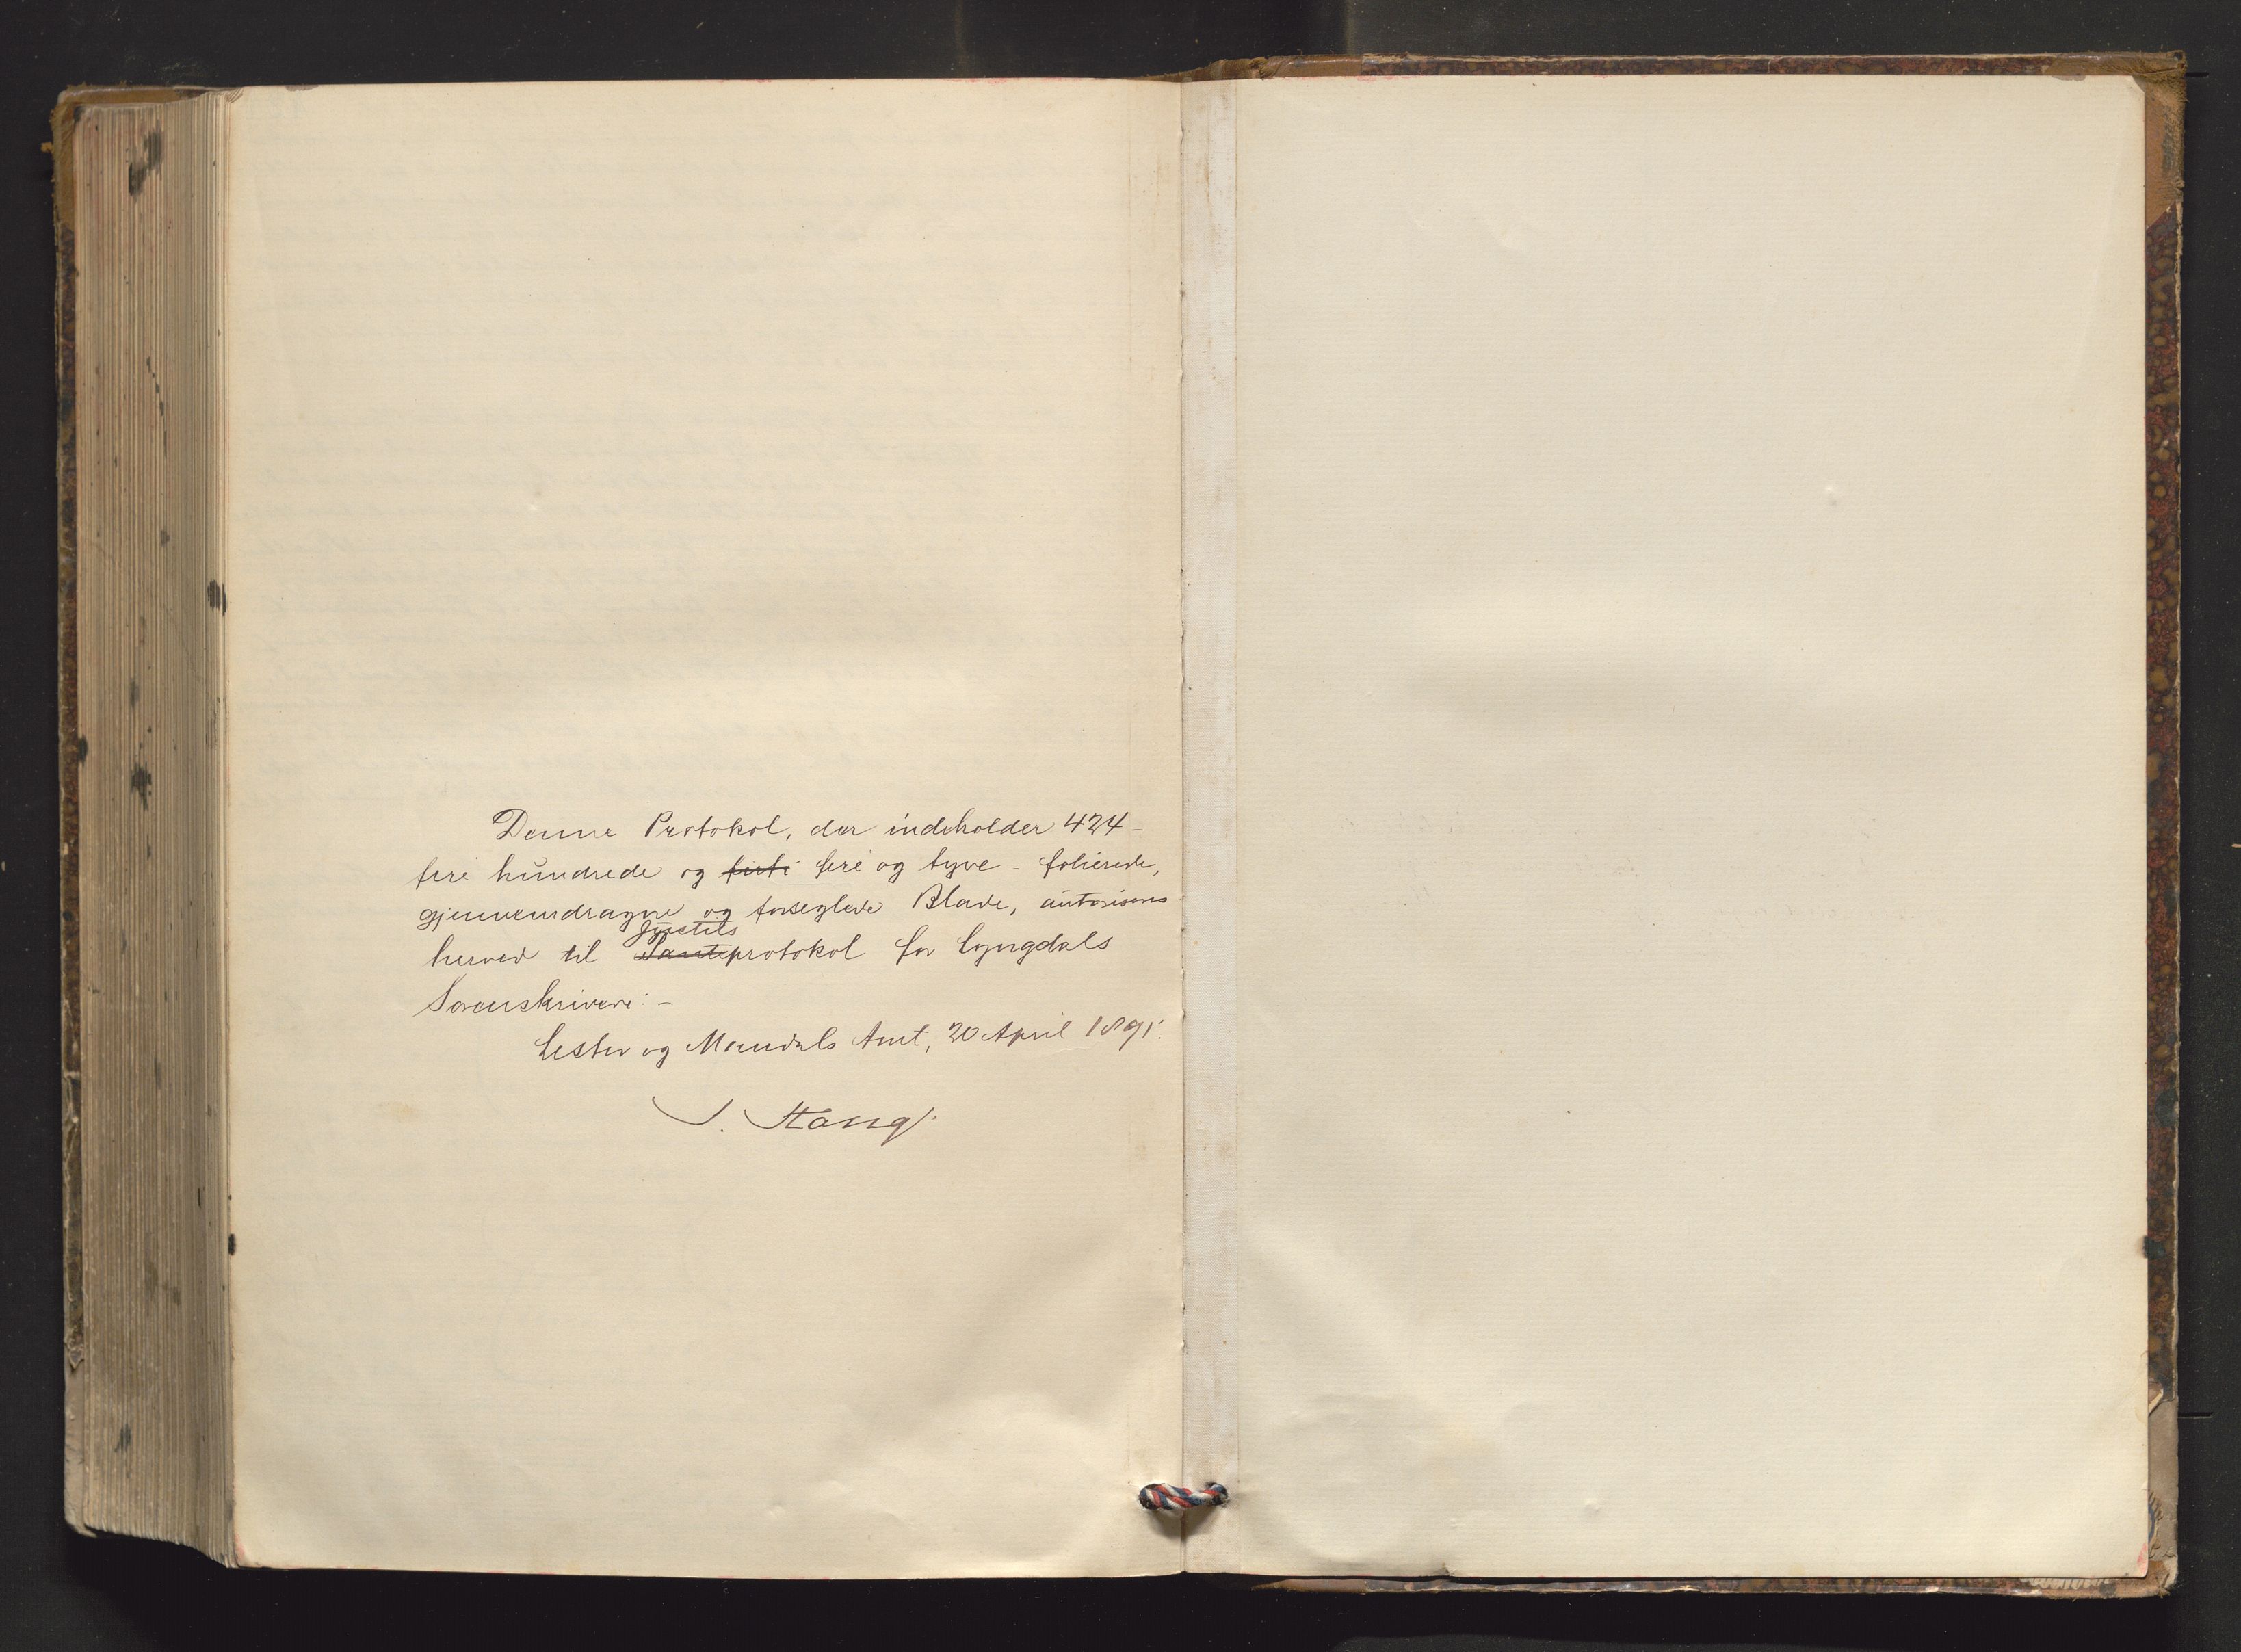 Denne Protokol, der indeholder 424 –
fire hundrede og ~~firti~~ fire og tyve – folierede,
gjennemdragne og forseglede Blade, autoriseres
herved til ~~Pante~~ Justitsprotokol for Lyngdals
Sorenskriveri: –
Lister og Mandals Amt, 20 April 1891.
J. Stang.